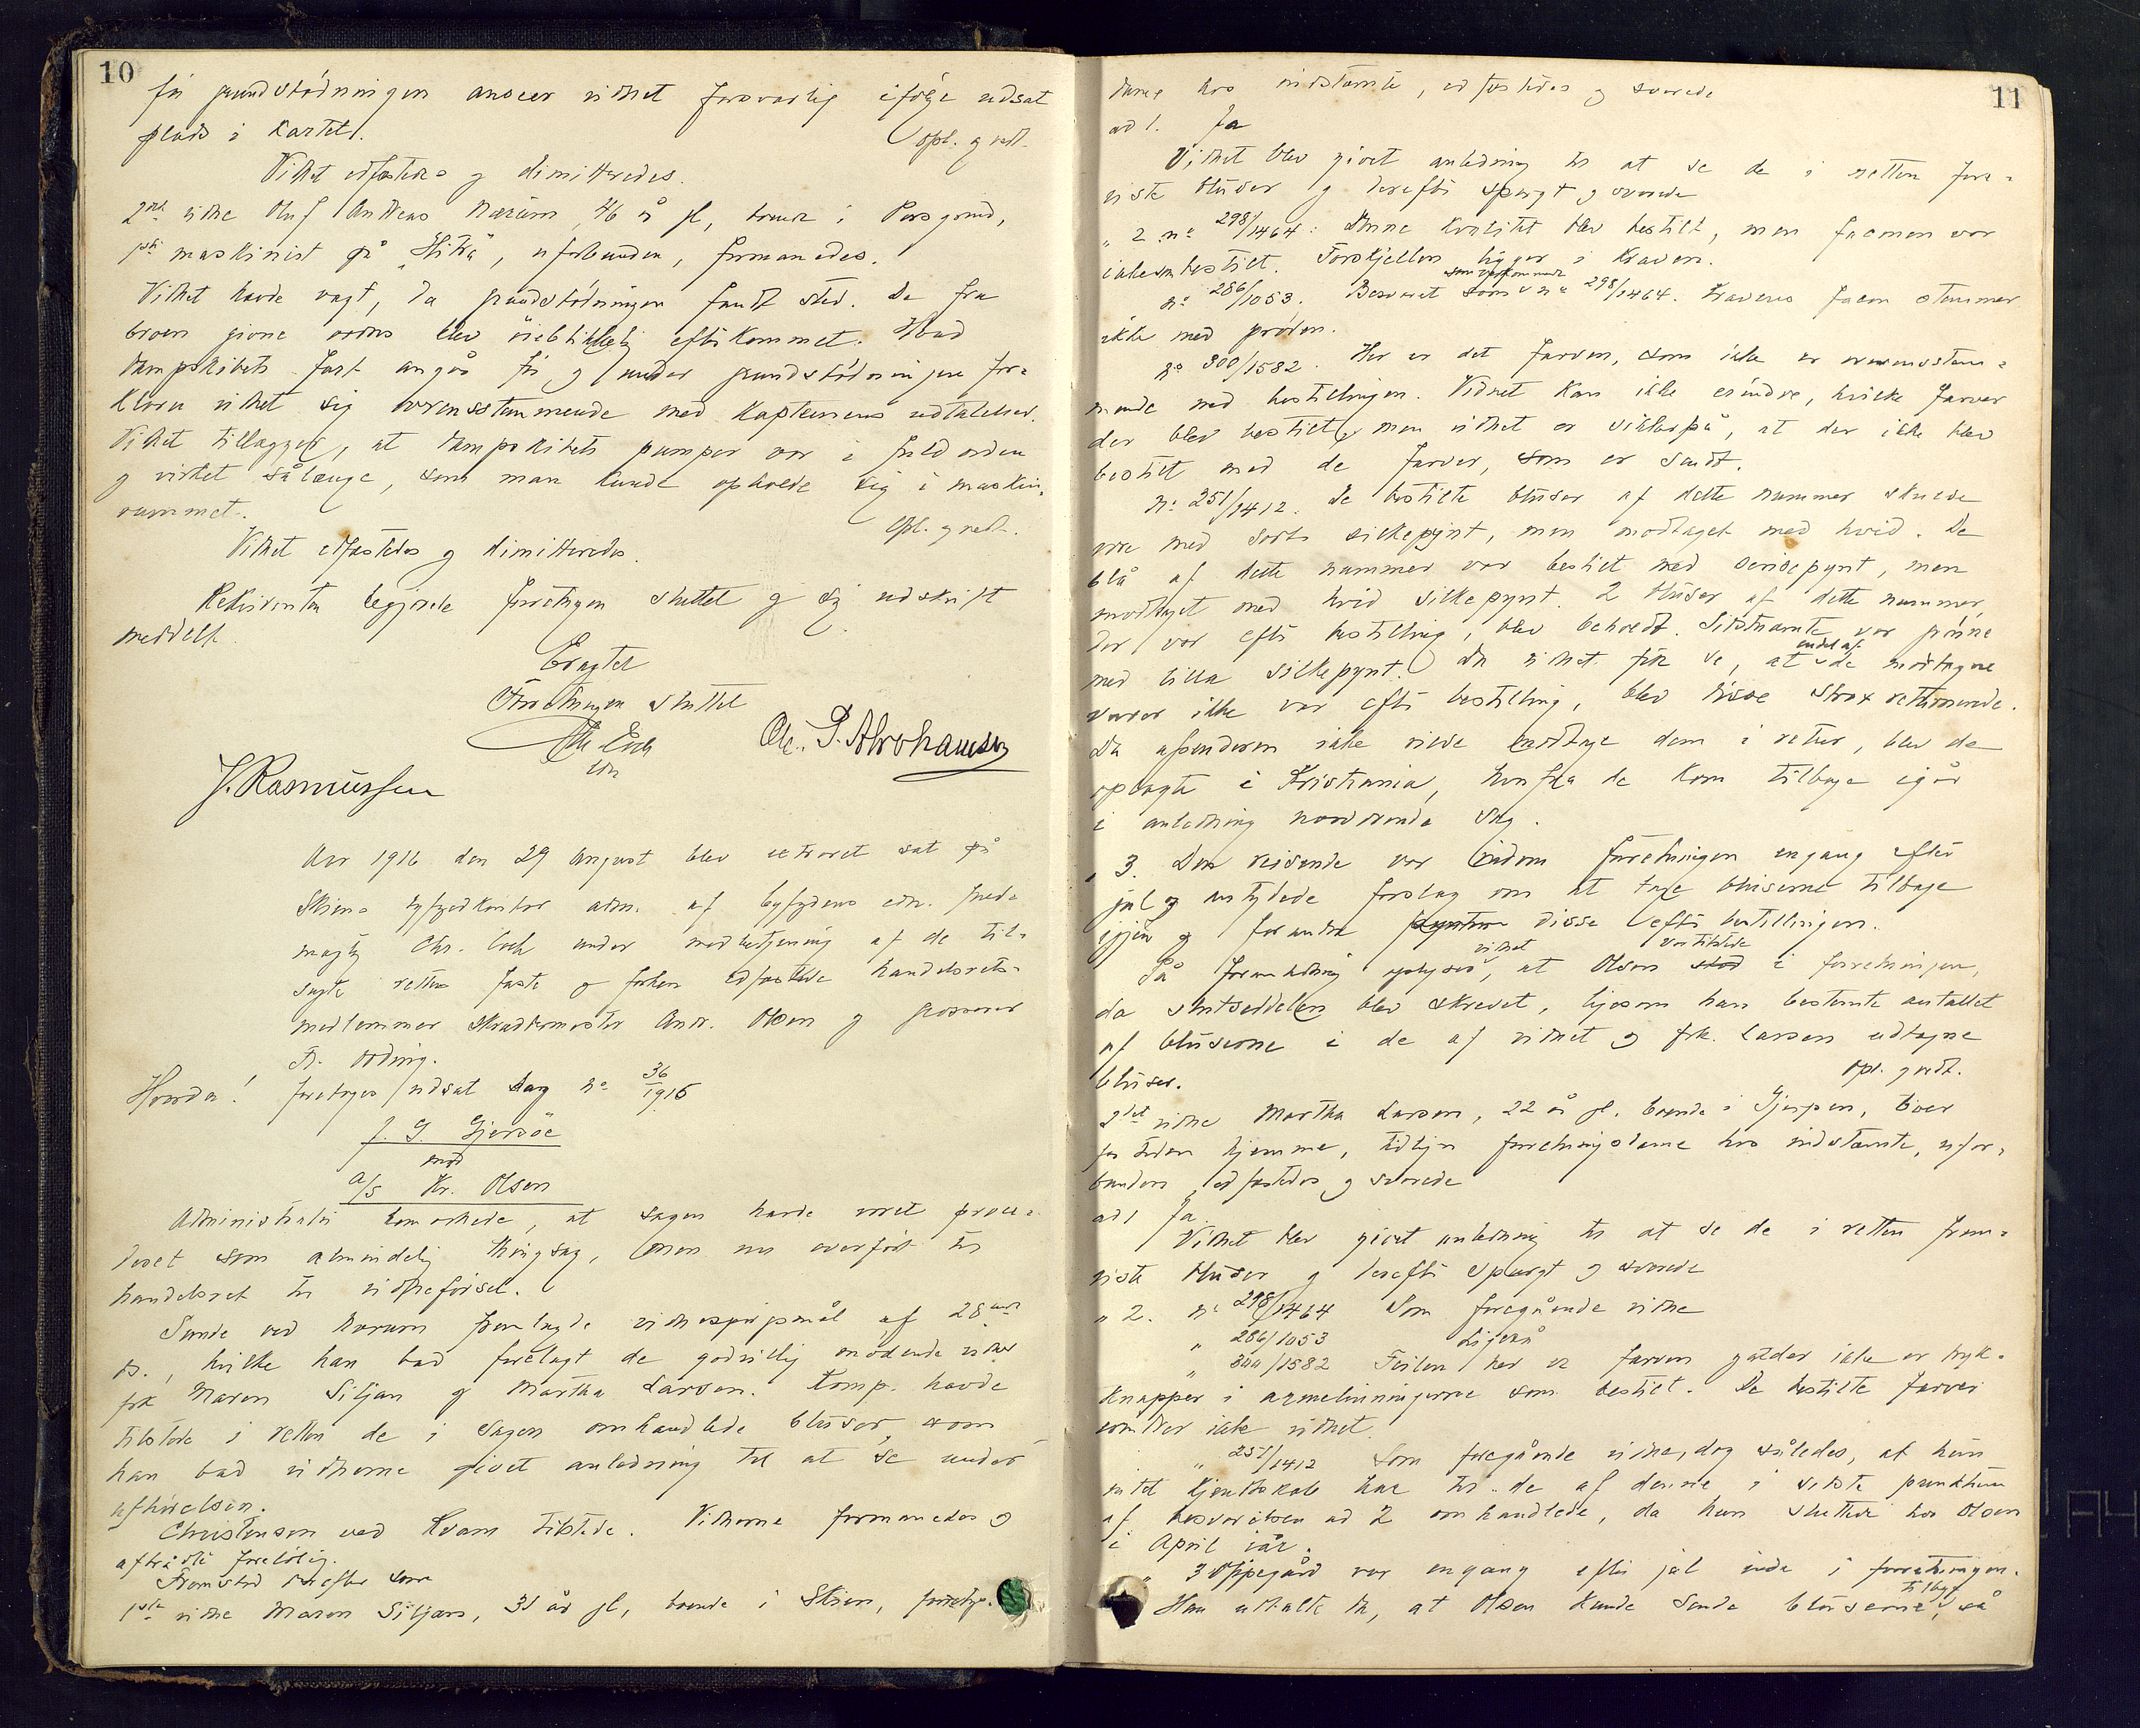 10
før grundstødningen anseer vidnet forsvarlig ifølge udsat
plads i kartet.
Opl. g vedt.
Vidnet edfæstedes g dimitteredes.
2det vidne Oluf Andreas Nærum, 46 år gl, boende i Porsgrund,
1ste maskinist på "Hitra", uforbunden, formanedes.
Vidnet havde vagt, da grundstødningen fandt sted. De fra
broen givne ordres blev øieblikkelig efterkommet. Hvad
dampskibets fart angår før g under grundstødningen for-
klarer vidnet sig overensstemmende med kapteinens udtalelser.
Vidnet tillægger, at dampskibets pumper var i fuld orden
g virket sålænge, som man kunde opholde sig i maskin-
rummet.
Opl. g vedt.
Vidnet edfæstedes g dimitteredes.
Rekvirenten begjærede forretningen sluttet g sig udskrift
meddelt.
Eragtet
Forretningen sluttet
Chr. Coch
edv
Ole P. Abrahamsen
J. Rasmussen
Aar 1916 den 29 August blev extraret sat på
Skiens byfogedkontor adm. af byfogdens edv. fuld-
mægtig Chr. Coch under medbetjening af de til-
sagte rettens faste g forhen edfæstede handelsrets-
medlemmer skræddermester Andr. Olsen g grosserer
Fr. Ording.
Hvorda! foretoges udsat sag No 36/1916
J. G. Gjersøe
mod
A/S Kr. Olsen
Administrator bemærkede, at sagen havde været proce-
deret som almindelig thingsag, men nu overført til
handelsret til vidneførsel.
Sunde ved Kvam fremlagde vidnespørgsmål af 28de
ds., hvilke han bad forelagt de godvillig mødende vidner
frk Maren Siljan g Martha Larsen. Komp. havde
tilstede i retten de i sagen omhandlede bluser, som
han bad vidnerne givet anledning til at se under
afhørelsen.
Christensen ved Kvam tilstede. Vidnerne formanedes g
aftrådte foreløbig.
Fremstod derefter som
1ste vidne Maren Siljan, 31 år gl, boende i Skien, forretnings-
11
dame hos indstævnte, edfæstedes g svarede
ad 1. Ja
Vidnet blev givet anledning til at se de i retten fore-
viste bluser g derefter spurgt g svarede
" 2 no 298/1464: Denne kvalitet blev bestilt, men faconen var
ikke som bestilt. Forskjellen ligger i kraven.
no 286/1053. Besvaret som vedkommende no 298/1464. Kravens facon stemmer
ikke med prøven.
no 300/1582. Her er det farven, som ikke er overensstem-
mende med bestillingen. Vidnet kan ikke erindre, hvilke farver
der blev bestilt, men vidnet er sikker på, at der ikke blev
bestilt med de farver, som er sendt.
no 251/1412. De bestilte bluser af dette nummer skulde
være med sort silkepynt, men modtaget med hvid. De
blå af dette nummer var bestilt med cerisepynt, men
modtaget med hvid silkepynt. 2 bluser af dette nummer,
der var efter bestilling, blev beholdt. Sidstnævnte var grønne
med lilla silkepynt. Da vidnet fik se, at endel af de modtagne
varer ikke var efter bestilling, blev disse strax returnerede.
Da afsenderen ikke vilde modtage dem i retur, blev de
oplagte i Kristiania, hvorfra de kom tilbage igår
i anledning nærværende sag.
" 3. Den reisende var indom forretningen engang efter
jul g antydede forslag om at tage bluserne tilbage
igjen g forandre disse efter bestillingen.
På foranledning oplyser vidnet, at Olsen var tilstede i forretningen,
da slutseddelen blev skrevet, ligesom han bestemte antallet
af bluserne i de af vidnet g frk. Larsen udtagne
bluser.
Opl. g vedt.
2det vidne Martha Larsen, 22 år gl. boende i Gjerpen, er
for tiden hjemme, tidligere forretningsdame hos indstævnte, ufor-
bunden, edfæstedes g svarede
ad 1 Ja.
Vidnet blev givet anledning til at se de i retten frem-
viste bluser g derefter spurgt g svarede
" 2. no 298/1464 Som foregående vidne
" 286/1053 Ligeså
" 300/1582 Feilen her er farven gjælder ikke er tryk-
knapper i ærmelinningerne som bestilt. De bestilte farver
erindrer ikke vidnet.
" 251/1412 Som foregående vidne, dog således, at hun
intet kjendskab har til de af denne i sidste punktum
af besvarelsen ad 2 omhandlede, da hun sluttede hos Olsen
i April iår.
" 3 Oppegård var engang efter jul inde i forretningen.
Han udtalte da, at Olsen kunde sende bluserne tilbage, så